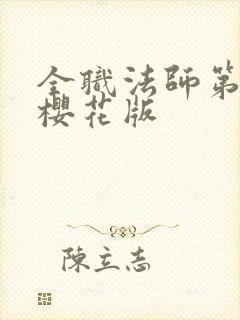 全職法師第
櫻花版
陳立志